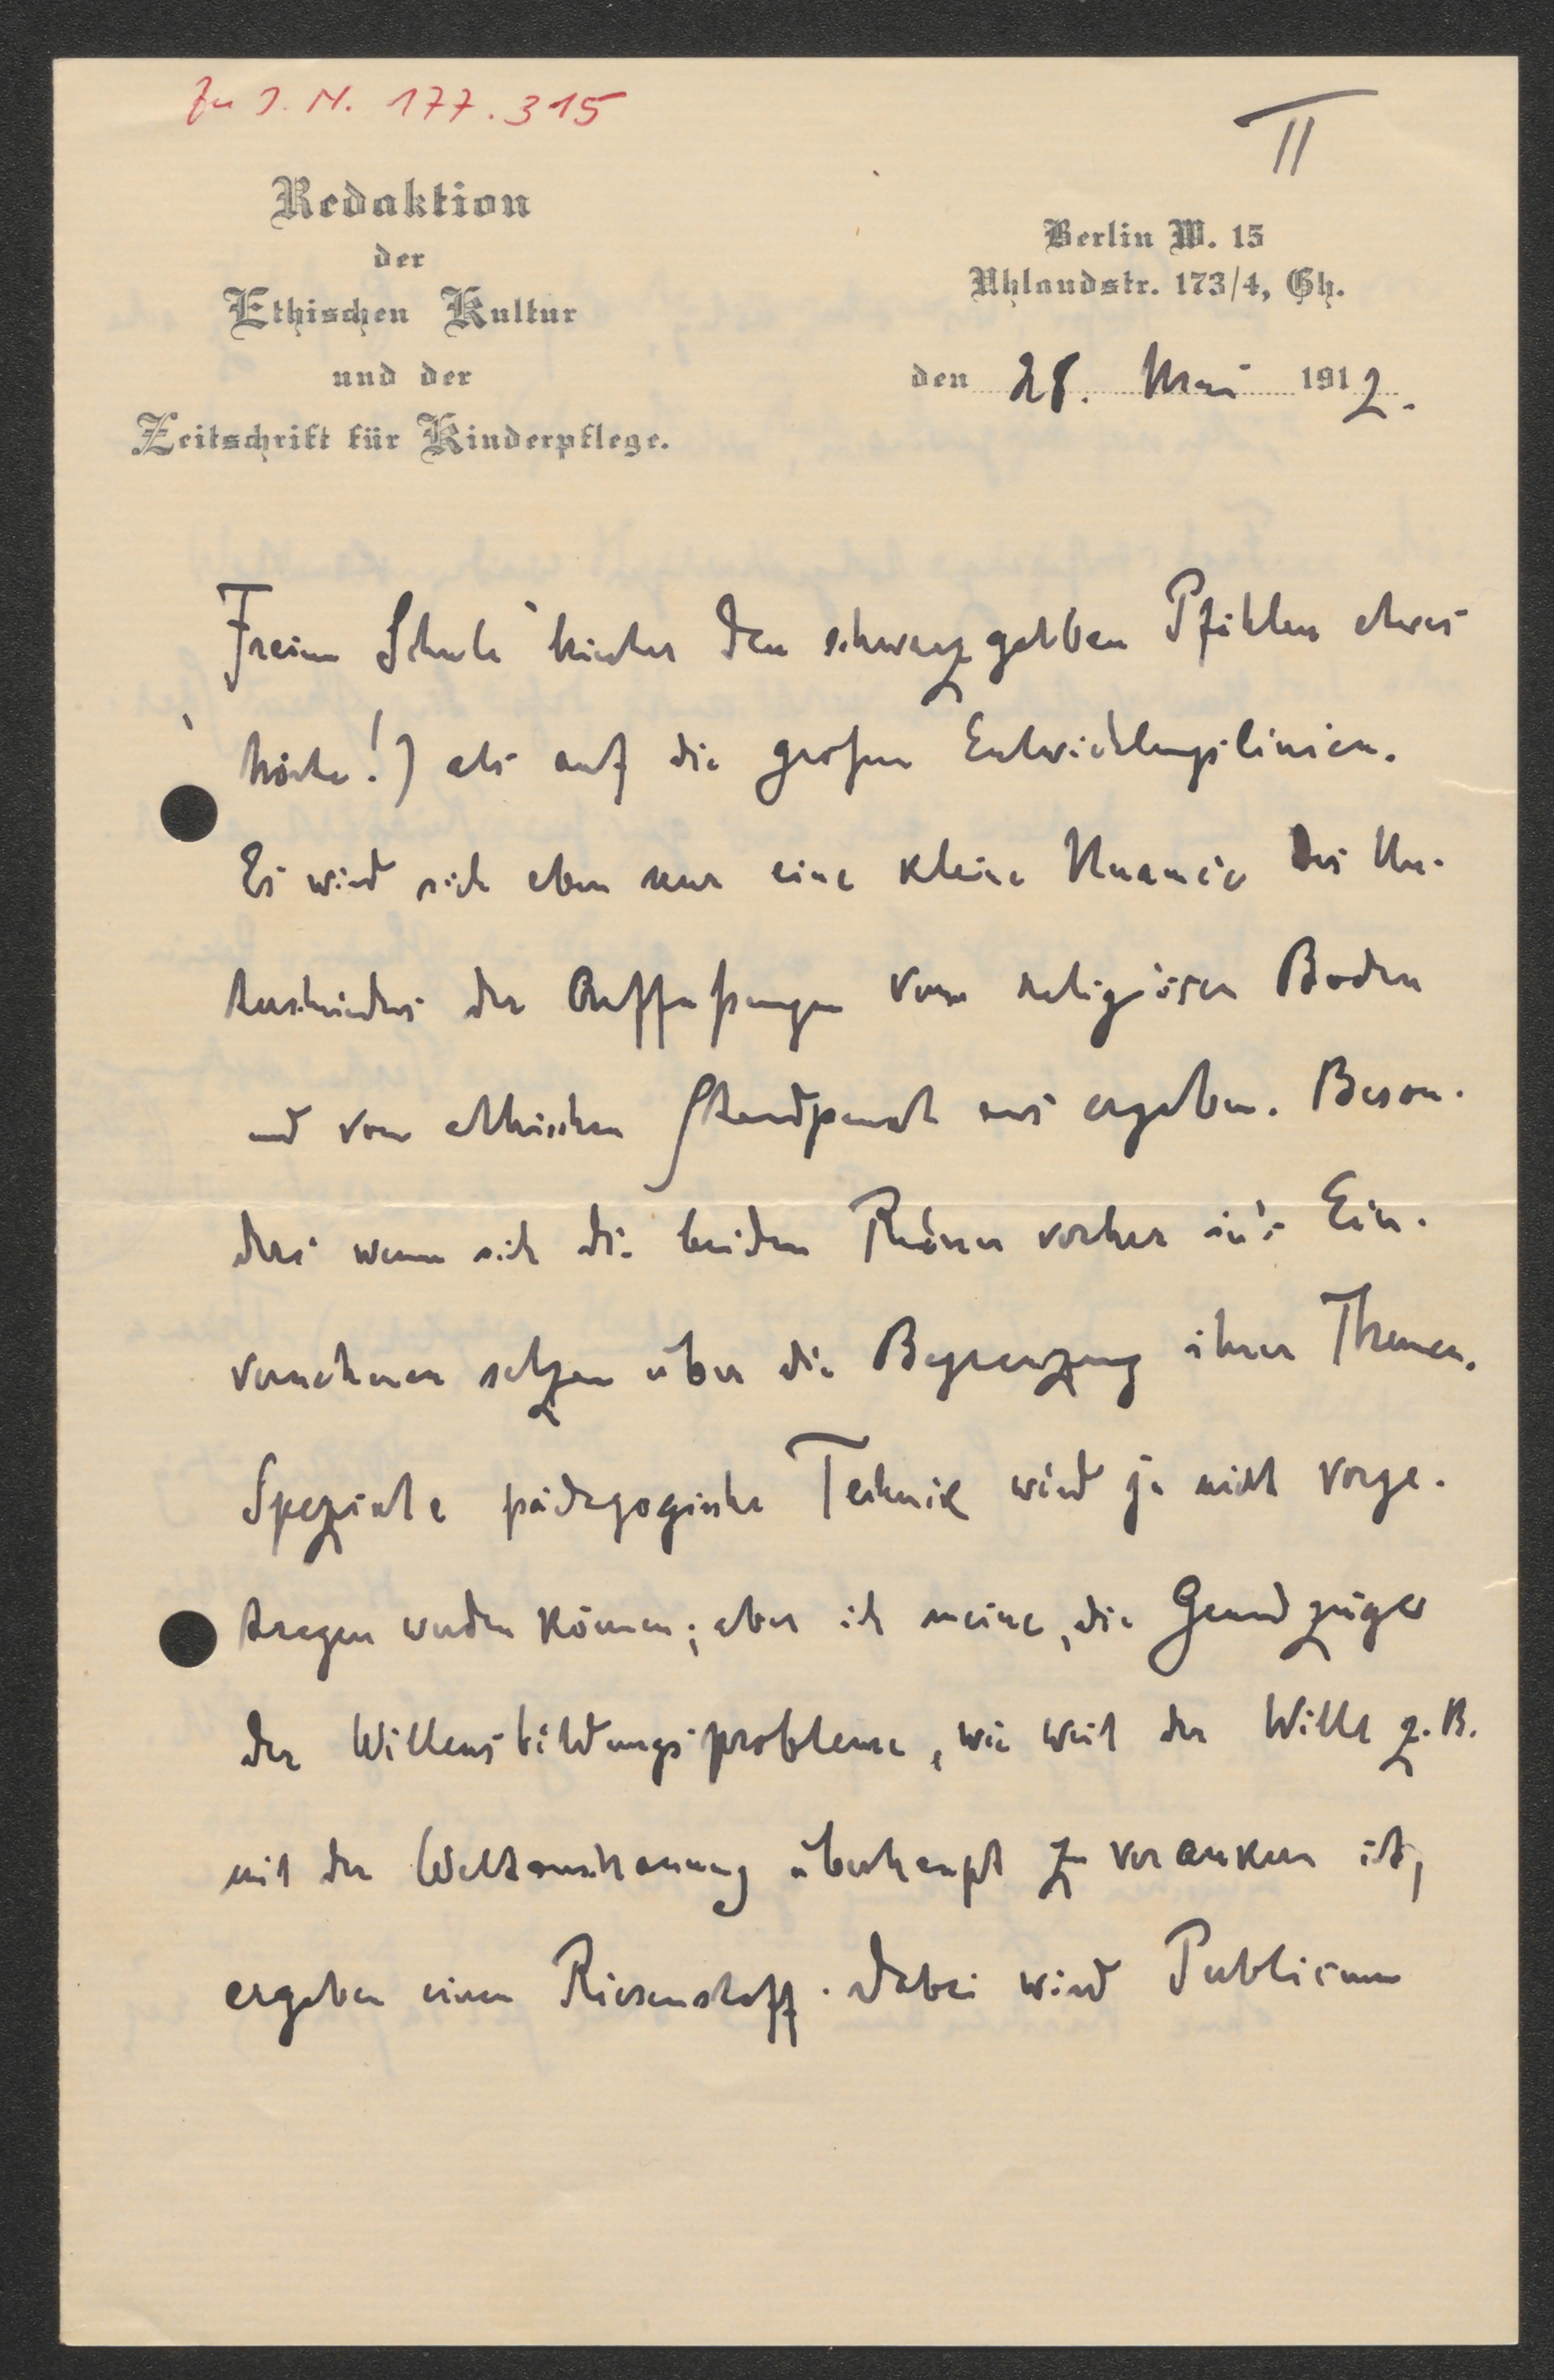 Zu I. N. 177.315
II
Redaktion
der
Ethischen Kultur
und der
Zeitschrift für Kinderpflege.
Berlin W. 15
Uhlandstr. 173/4, Gh.
den 28. Mai 1912.
Freien Schule" hinter den schwarzgelben Pfählen etwas
hörte!) als auf die großen Entwicklungslinien.
Es wird sich eben nur eine kleine Nuance des Un-
terschiedes der Auffaßungen vom religiösen Boden
und vom ethischen Standpunct aus ergeben. Beson-
ders wenn sich die beiden Redner vorher in's Ein-
vernehmen setzen über die Begrenzung ihrer Themen.
Spezielle pädagogische Technik wird ja nicht vorge-
tragen werden können; aber ich meine, die Grundzüge
der Willensbildungsprobleme, wie weit der Wille z. B.
mit der Weltanschauung überhaupt zu verankern ist,
ergeben einen Riesenstoff. Dabei wird Publicum